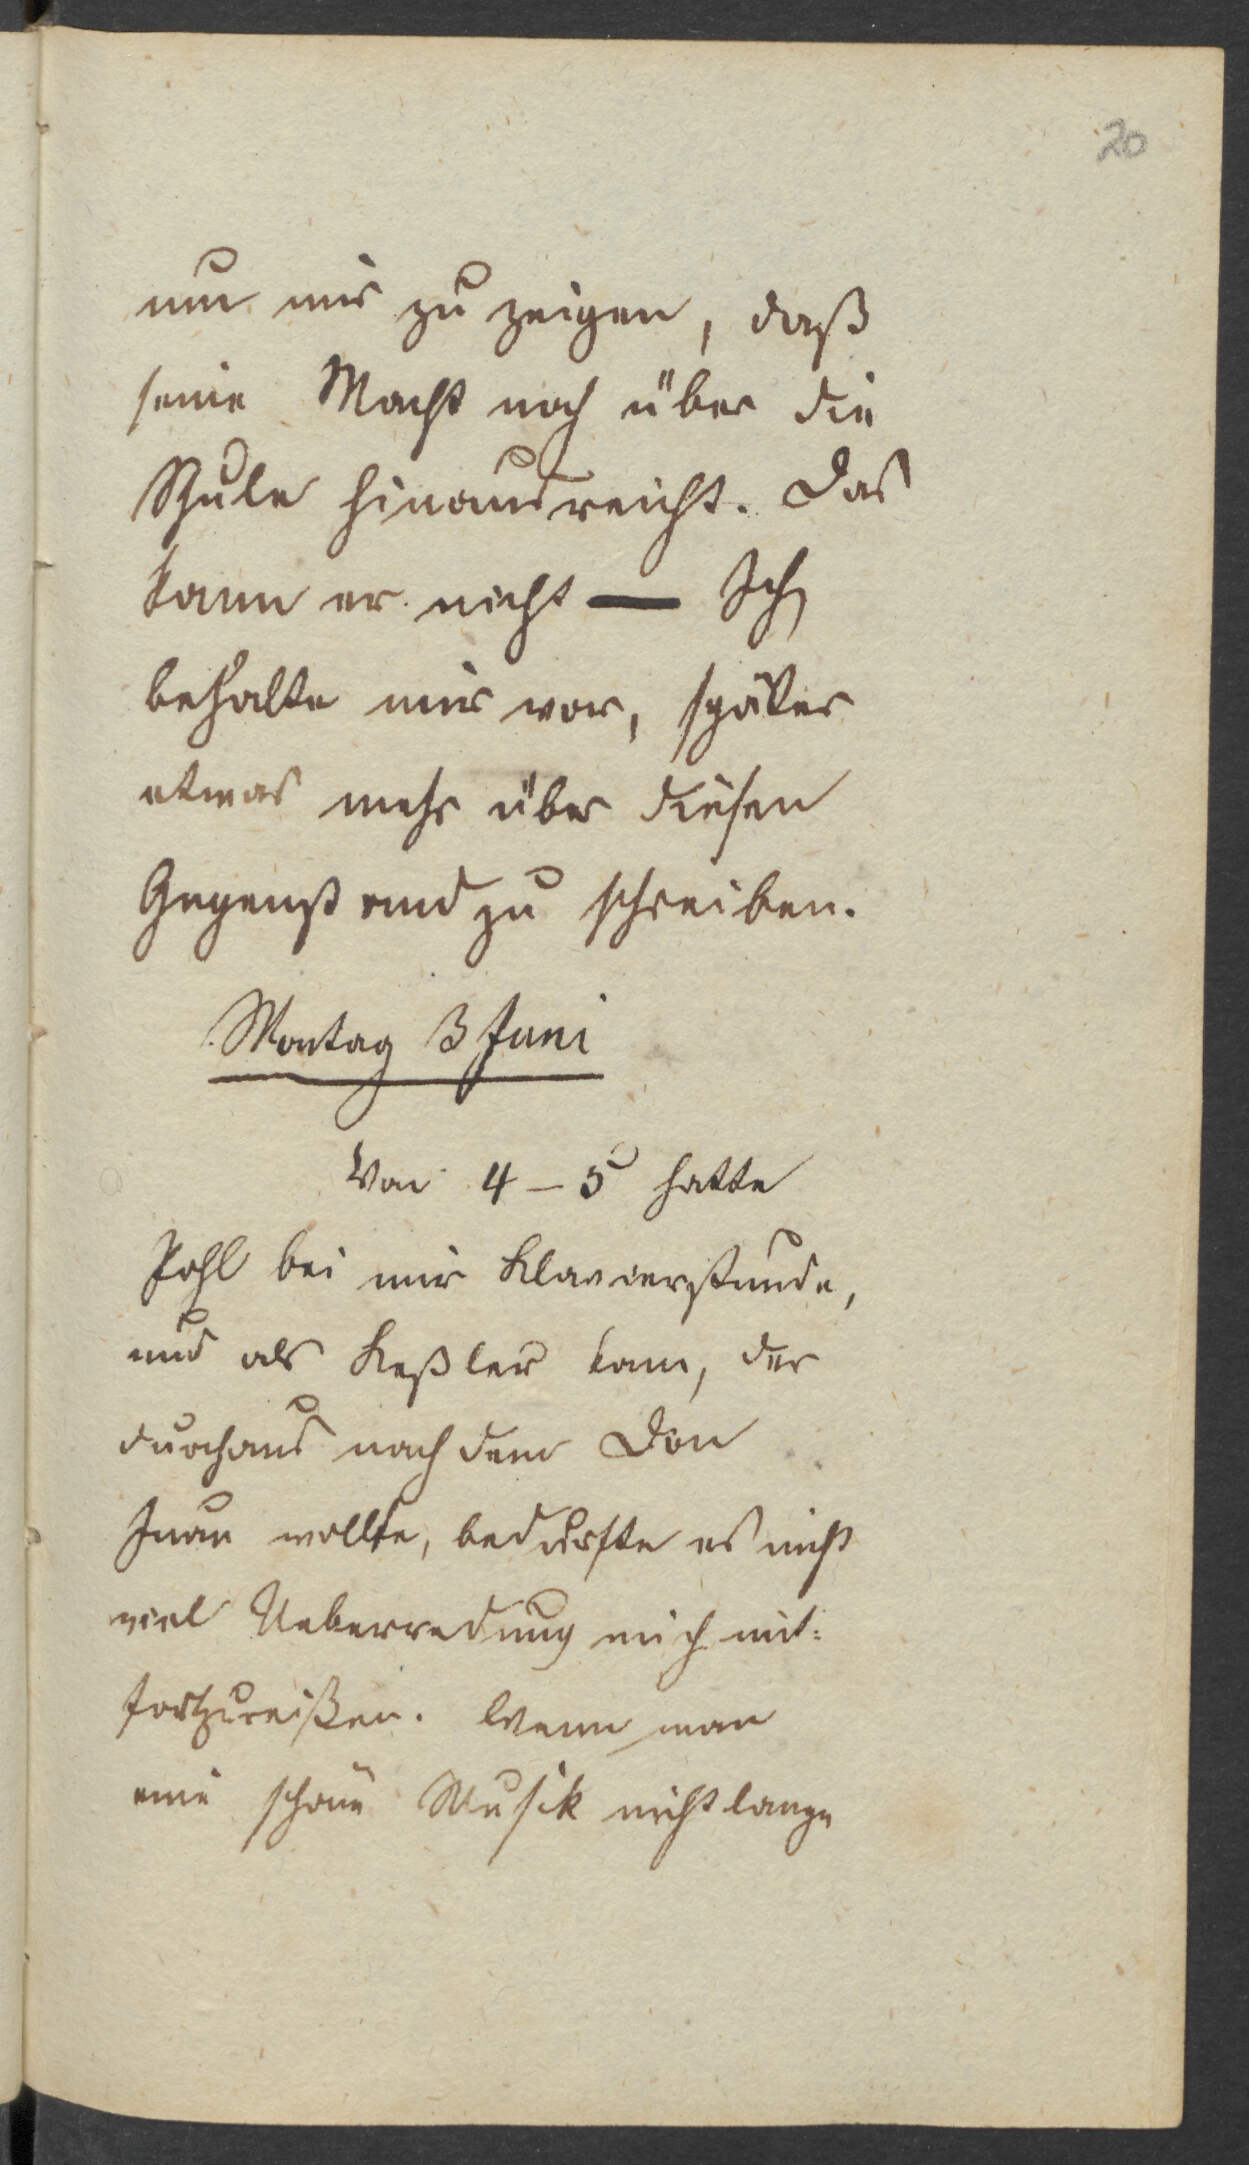 20
um mir zu zeigen, daß
seine Macht noch über die
Schule hinausreicht. Das
kann er nicht — Ich
behalte mir vor, später
etwas mehr über diesen
Gegenstand zu schreiben.
Montag 3 Juni
Von 4–5 hatte
Pohl bei mir Klavierstunde,
und als Keßler kam, der
durchaus nach dem Don
Juan wollte, bedurfte es nicht
viel Ueberredung mich mit=
fortzureißen. Wenn man
eine schöne Musik nicht lange